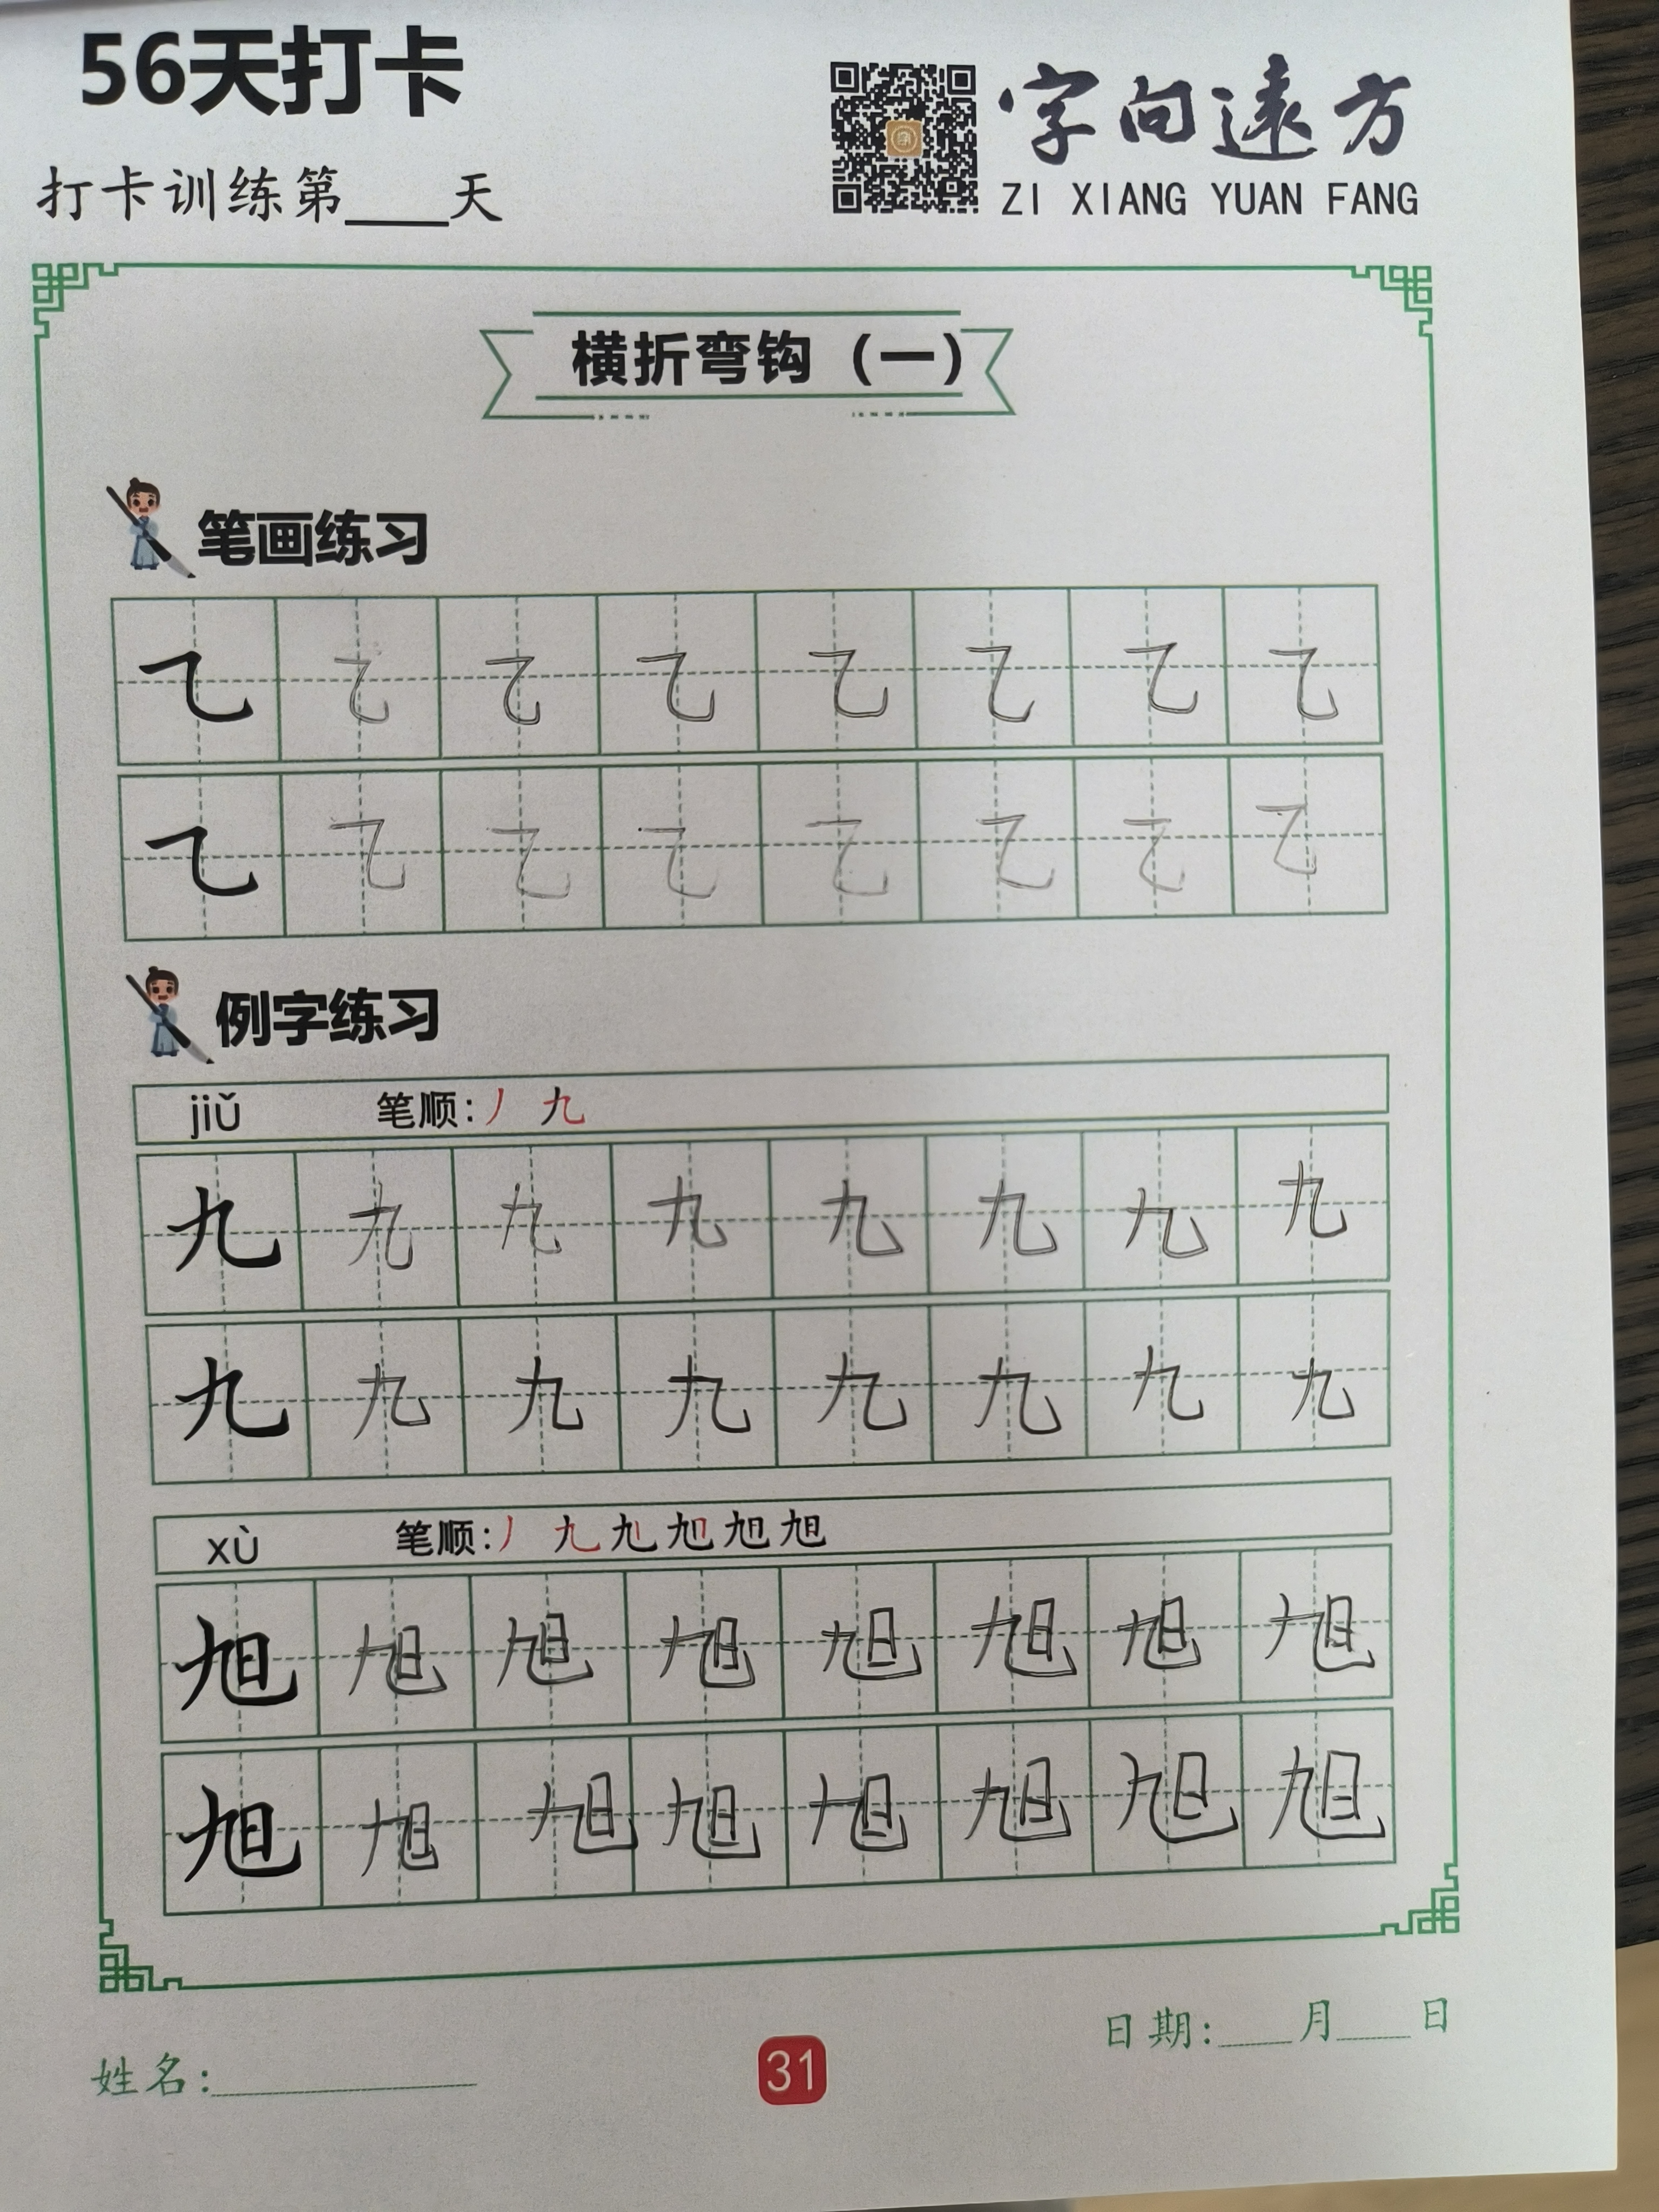 56天打卡
字向遠方
ZI XIANG YUAN FANG
打卡训练第____天
横折弯钩（一）
笔画练习
㇈ ㇈ ㇈ ㇈ ㇈ ㇈ ㇈ ㇈
㇈ ㇈ ㇈ ㇈ ㇈ ㇈ ㇈ ㇈
例字练习
jiǔ 笔顺:丿 九
九 九 九 九 九 九 九 九
九 九 九 九 九 九 九 九
xù 笔顺:丿 九 旭 旭 旭 旭
旭 旭 旭 旭 旭 旭 旭 旭
旭 旭 旭 旭 旭 旭 旭 旭
日期:___月___日
姓名:__________
31